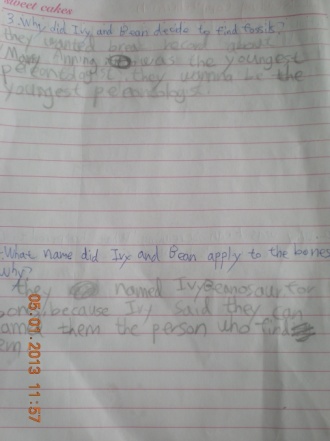 sweet cakes
3. Why did Ivy and Bean decide to find fossils?
they wanted break record about
Mary Anning was the youngest
they wanna be the
youngest
What name did Ivy and Bean apply to the bones
why?
they named Ivybeanosaur for
bone because Ivy said they can
them the person who find
em
05.01.2013 11:57